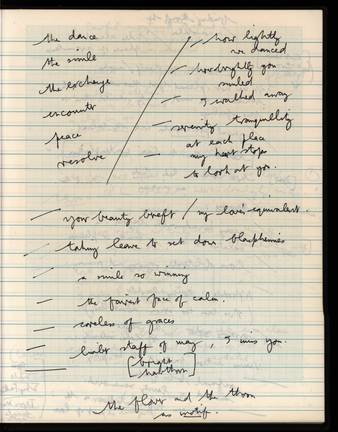 the dance
the smile
the exchange
encounter
peace
resolve
how lightly
we danced
how brightly you
smiled
I walked away
serenity tranquility
at each place
my heart stops
to look at you.
your beauty bereft / my love's equivalent.
taking leave to set down blasphemies
a smile so winning
the fairest face of calm.
careless of graces
staff of may, I miss you.
[bright
hawthorn]
the flower and the thorn
as motif.